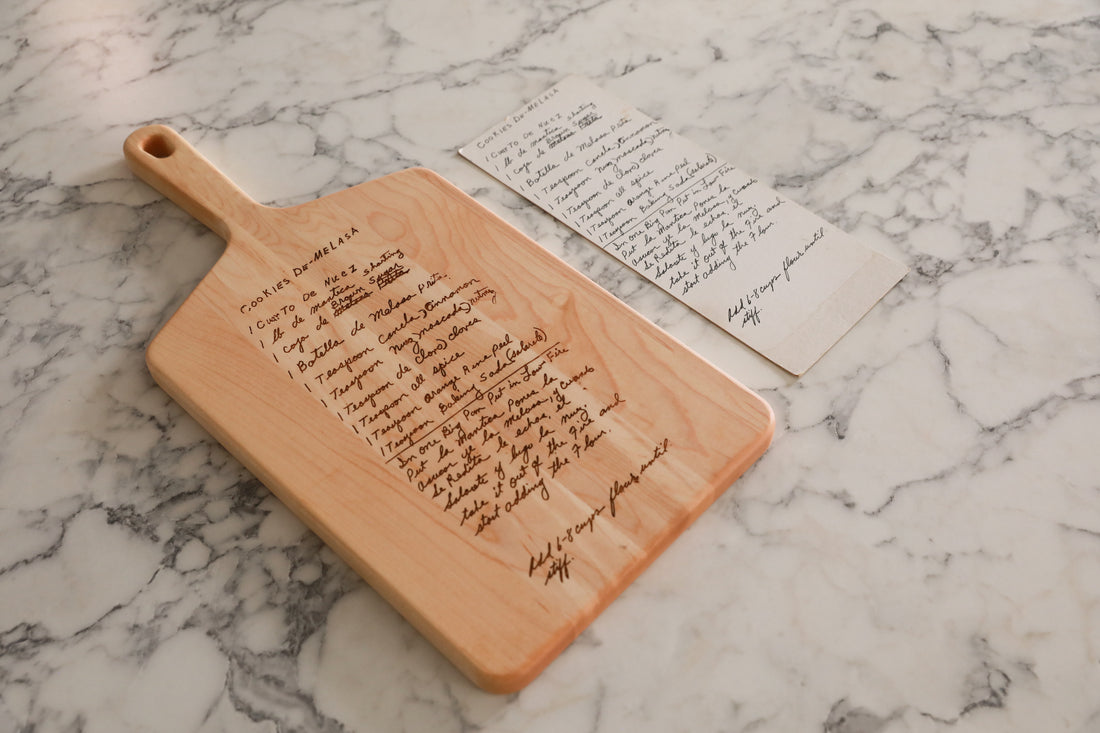 COOKIES DE-MELASA
1 CUARTO DE NUEZ
1 lb de mantica shorting
1 caja de Brown Sugar
1 Botella de Melasa Prieta
1 Teaspoon Canela) Cinnamon
1 Teaspoon Nuez moscada) nutmeg
1 Teaspoon de Clavo) cloves
1 Teaspoon all spice
1 Teaspoon orange Rine Peel
1 Teaspoon Baking Soda (Saleratus)
In one Big Pan Put in Low Fire
Put la Mantica Pones la
asucar y la Melasa, y cuando
se Redite le echas, el
Salaute y luego la nuez
take it out of the Fire and
start adding the Flour.
Add 6-8 cups flour until
stiff.
COOKIES DE-MELASA
1 CUARTO DE NUEZ
1 lb de mantica shorting
1 caja de Brown Sugar
1 Botella de Melasa Prieta
1 Teaspoon Canela) Cinnamon
1 Teaspoon Nuez moscada) nutmeg
1 Teaspoon de Clavo) cloves
1 Teaspoon all spice
1 Teaspoon orange Rine Peel
1 Teaspoon Baking Soda (Saleratus)
In one Big Pan Put in Low Fire
Put la Mantica Pones la
asucar y la Melasa, y cuando
se Redite le echas, el
Salaute y luego la nuez
take it out of the Fire and
start adding the Flour
Add 6-8 cups flour until
stiff.